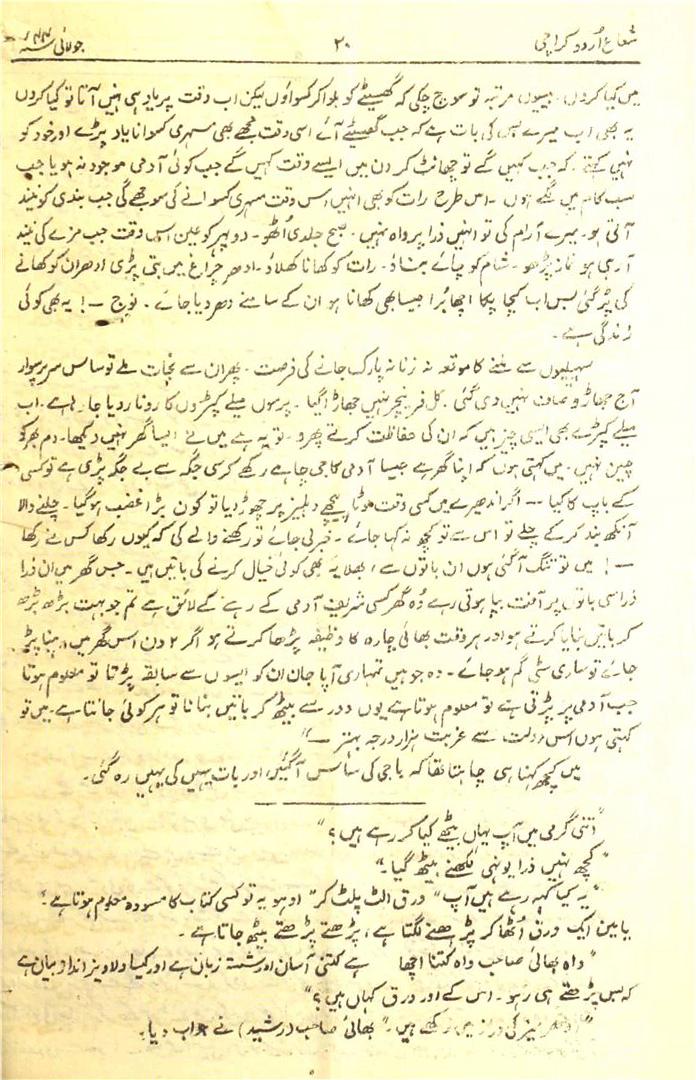 شعاع اُردو کراچی ۲۰ جولائی سنہ ۴۴ء
میں کیا کروں۔ بیسیوں مرتبہ تو سوچ چکی کہ گھیسٹے کو بلوا کر کسواؤں لیکن اب وقت پر یاد ہی نہیں آتا تو کیا کروں
یہ بھی اب میرے بس کی بات ہے کہ جب گھسیٹے آئے اسی وقت مجھے بھی مسہری کسوانا یاد پڑے اور خود کو
نہیں کہتے۔ کہ جب کہیں گے تو چھانٹ کر دن میں ایسے وقت کہیں گے جب کوئی آدمی موجود نہ ہو یا جب
سب کام میں لگے ہوں۔ اس طرح رات کو بھی انہیں اس وقت مسہری کسوانے کی سوجھے گی جب بندی کو نیند
آتی ہو۔ میرے آرام کی تو انہیں ذرا پرواہ نہیں۔ صبح جلدی اُٹھو۔ دوپہر کو عین اس وقت جب مزے کی نیند
آ رہی ہو نماز پڑھو۔ شام کو چائے بناؤ۔ رات کو کھانا کھلاؤ۔ ادھر چراغ میں بتی پڑی ادھر ان کو کھانے
کی پڑ گئی بس اب کچا پکا اچھا بُرا جیسا بھی کھانا ہو ان کے سامنے دھر دیا جائے۔ نوج —! یہ بھی کوئی
زندگی ہے۔
سہیلیوں سے ملنے کا موقعہ نہ زنانہ پارک جانے کی فرصت۔ پھر ان سے نجات ملے تو ساس سر پر سوار
آج جھاڑو صاف نہیں دی گئی۔ کل فرنیچر نہیں جھاڑا گیا۔ پرسوں میلے کپڑوں کا رونا رویا جا رہا ہے۔ اب
میلے کپڑے بھی ایسی چیز ہیں کہ ان کی حفاظت کرتے پھرو۔ توبہ ہے میں نے ایسا گھر نہیں دیکھا۔ دم بھر کو
چین نہیں۔ میں کہتی ہوں کہ اپنا گھر ہے جیسا آدمی کا جی چاہے رکھے کرسی جگہ سے بے جگہ پڑی ہے تو کسی
کے باپ کا کیا — اگر اندھیرے میں کسی وقت موٹا پیچھے دہلیز پر چھوڑ دیا تو کون بڑا غضب ہو گیا۔ چلنے والا
آنکھ بند کر کے چلے تو اس سے تو کچھ نہ کہا جائے۔ خبر لی جائے تو رکھنے والے کی کہ کیوں رکھا کس نے رکھا
—! میں تو تنگ آگئی ہوں ان باتوں سے، بھلا یہ بھی کوئی خیال کرنے کی باتیں ہیں۔ جس گھر میں ان ذرا
ذرا سی باتوں پر آفت بپا ہوتی رہے وُہ گھر کسی شریف آدمی کے رہنے کے لائق ہے تم جو بہت بڑھ بڑھ
کر باتیں بنایا کرتے ہو اور ہر وقت بھائی چارہ کا وظیفہ پڑھا کرتے ہو اگر ۲ دن اس گھر میں رہنا پڑ
جائے تو ساری سٹی گم ہو جائے۔ وہ جو ہیں تمہاری آپا جان ان کو ایسوں سے سابقہ پڑتا تو معلوم ہوتا
جب آدمی پر پڑتی ہے تو معلوم ہوتا ہے یوں دور سے بیٹھ کر باتیں بنانا تو ہر کوئی جانتا ہے۔ میں تو
کہتی ہوں اس دولت سے غربت ہزار درجہ بہتر —"
میں کچھ کہنا ہی چاہتا تھا کہ باجی کی ساس آگئیں اور بات یہیں کی یہیں رہ گئی۔
"اتنی گرمی میں آپ یہاں بیٹھے کیا کر رہے ہیں؟"
"کچھ نہیں ذرا یونہی لکھنے بیٹھ گیا۔"
"یہ کیا کہہ رہے ہیں آپ" ورق الٹ پلٹ کر" اوہو یہ تو کسی کتاب کا مسودہ معلوم ہوتا ہے۔"
یامین ایک ورق اُٹھا کر پڑھنے لگتا ہے، پڑھتے پڑھتے بیٹھ جاتا ہے۔
"واہ بھائی صاحب واہ کتنا اچھا ہے کتنی آسان اور شستہ زبان ہے اور کیسا دلاویز انداز بیان ہے
کہ بس پڑھتے ہی رہو۔ اس کے اور ورق کہاں ہیں؟"
میز کی دراز میں رکھے ہیں۔" بھائی صاحب (رشید) نے جواب دیا۔